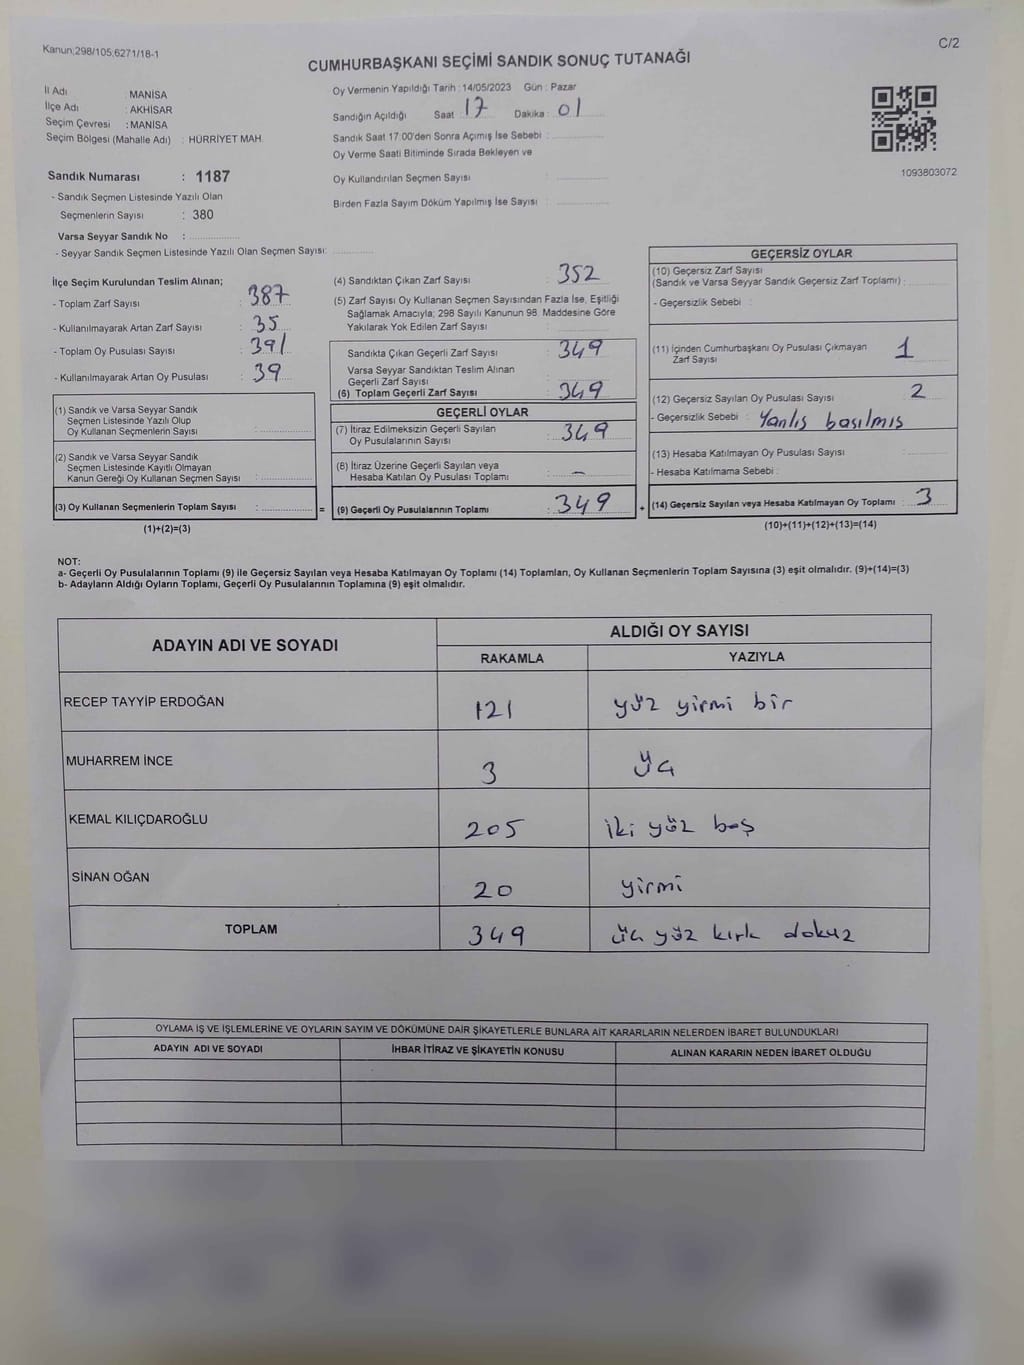 Kanun;298/105;6271/18-1
C/2
CUMHURBAŞKANI SEÇİMİ SANDIK SONUÇ TUTANAĞI
İl Adı : MANİSA
İlçe Adı : AKHİSAR
Seçim Çevresi : MANİSA
Seçim Bölgesi (Mahalle Adı) : HÜRRİYET MAH.
Sandık Numarası : 1187
- Sandık Seçmen Listesinde Yazılı Olan
Seçmenlerin Sayısı : 380
Varsa Seyyar Sandık No :
- Seyyar Sandık Seçmen Listesinde Yazılı Olan Seçmen Sayısı:
Oy Vermenin Yapıldığı Tarih : 14/05/2023 Gün : Pazar
Sandığın Açıldığı Saat : 17 Dakika : 01
Sandık Saat 17.00'den Sonra Açımış İse Sebebi :
Oy Verme Saati Bitiminde Sırada Bekleyen ve
Oy Kullandırılan Seçmen Sayısı :
Birden Fazla Sayım Döküm Yapılmış İse Sayısı :
1093803072
İlçe Seçim Kurulundan Teslim Alınan;
- Toplam Zarf Sayısı : 387
- Kullanılmayarak Artan Zarf Sayısı : 35
- Toplam Oy Pusulası Sayısı : 391
- Kullanılmayarak Artan Oy Pusulası : 39
(1) Sandık ve Varsa Seyyar Sandık
Seçmen Listesinde Yazılı Olup
Oy Kullanan Seçmenlerin Sayısı :
(2) Sandık ve Varsa Seyyar Sandık
Seçmen Listesinde Kayıtlı Olmayan
Kanun Gereği Oy Kullanan Seçmen Sayısı :
(3) Oy Kullanan Seçmenlerin Toplam Sayısı : =
(1)+(2)=(3)
(4) Sandıktan Çıkan Zarf Sayısı : 352
(5) Zarf Sayısı Oy Kullanan Seçmen Sayısından Fazla İse, Eşitliği
Sağlamak Amacıyla; 298 Sayılı Kanunun 98. Maddesine Göre
Yakılarak Yok Edilen Zarf Sayısı :
Sandıkta Çıkan Geçerli Zarf Sayısı : 349
Varsa Seyyar Sandıktan Teslim Alınan
Geçerli Zarf Sayısı :
(6) Toplam Geçerli Zarf Sayısı : 349
GEÇERLİ OYLAR
(7) İtiraz Edilmeksizin Geçerli Sayılan
Oy Pusulalarının Sayısı : 349
(8) İtiraz Üzerine Geçerli Sayılan veya
Hesaba Katılan Oy Pusulası Toplamı : –
(9) Geçerli Oy Pusulalarının Toplamı : 349 +
GEÇERSİZ OYLAR
(10) Geçersiz Zarf Sayısı
(Sandık ve Varsa Seyyar Sandık Geçersiz Zarf Toplamı) :
- Geçersizlik Sebebi :
(11) İçinden Cumhurbaşkanı Oy Pusulası Çıkmayan
Zarf Sayısı : 1
(12) Geçersiz Sayılan Oy Pusulası Sayısı : 2
- Geçersizlik Sebebi : Yanlış basılmış
(13) Hesaba Katılmayan Oy Pusulası Sayısı :
- Hesaba Katılmama Sebebi :
(14) Geçersiz Sayılan veya Hesaba Katılmayan Oy Toplamı : 3
(10)+(11)+(12)+(13)=(14)
NOT:
a- Geçerli Oy Pusulalarının Toplamı (9) ile Geçersiz Sayılan veya Hesaba Katılmayan Oy Toplamı (14) Toplamları, Oy Kullanan Seçmenlerin Toplam Sayısına (3) eşit olmalıdır. (9)+(14)=(3)
b- Adayların Aldığı Oyların Toplamı, Geçerli Oy Pusulalarının Toplamına (9) eşit olmalıdır.
ADAYIN ADI VE SOYADI
ALDIĞI OY SAYISI
RAKAMLA YAZIYLA
RECEP TAYYİP ERDOĞAN 121 yüz yirmi bir
MUHARREM İNCE 3 üç
KEMAL KILIÇDAROĞLU 205 iki yüz beş
SİNAN OĞAN 20 yirmi
TOPLAM 349 üç yüz kırk dokuz
OYLAMA İŞ VE İŞLEMLERİNE VE OYLARIN SAYIM VE DÖKÜMÜNE DAİR ŞİKAYETLERLE BUNLARA AİT KARARLARIN NELERDEN İBARET BULUNDUKLARI
ADAYIN ADI VE SOYADI İHBAR İTİRAZ VE ŞİKAYETİN KONUSU ALINAN KARARIN NEDEN İBARET OLDUĞU